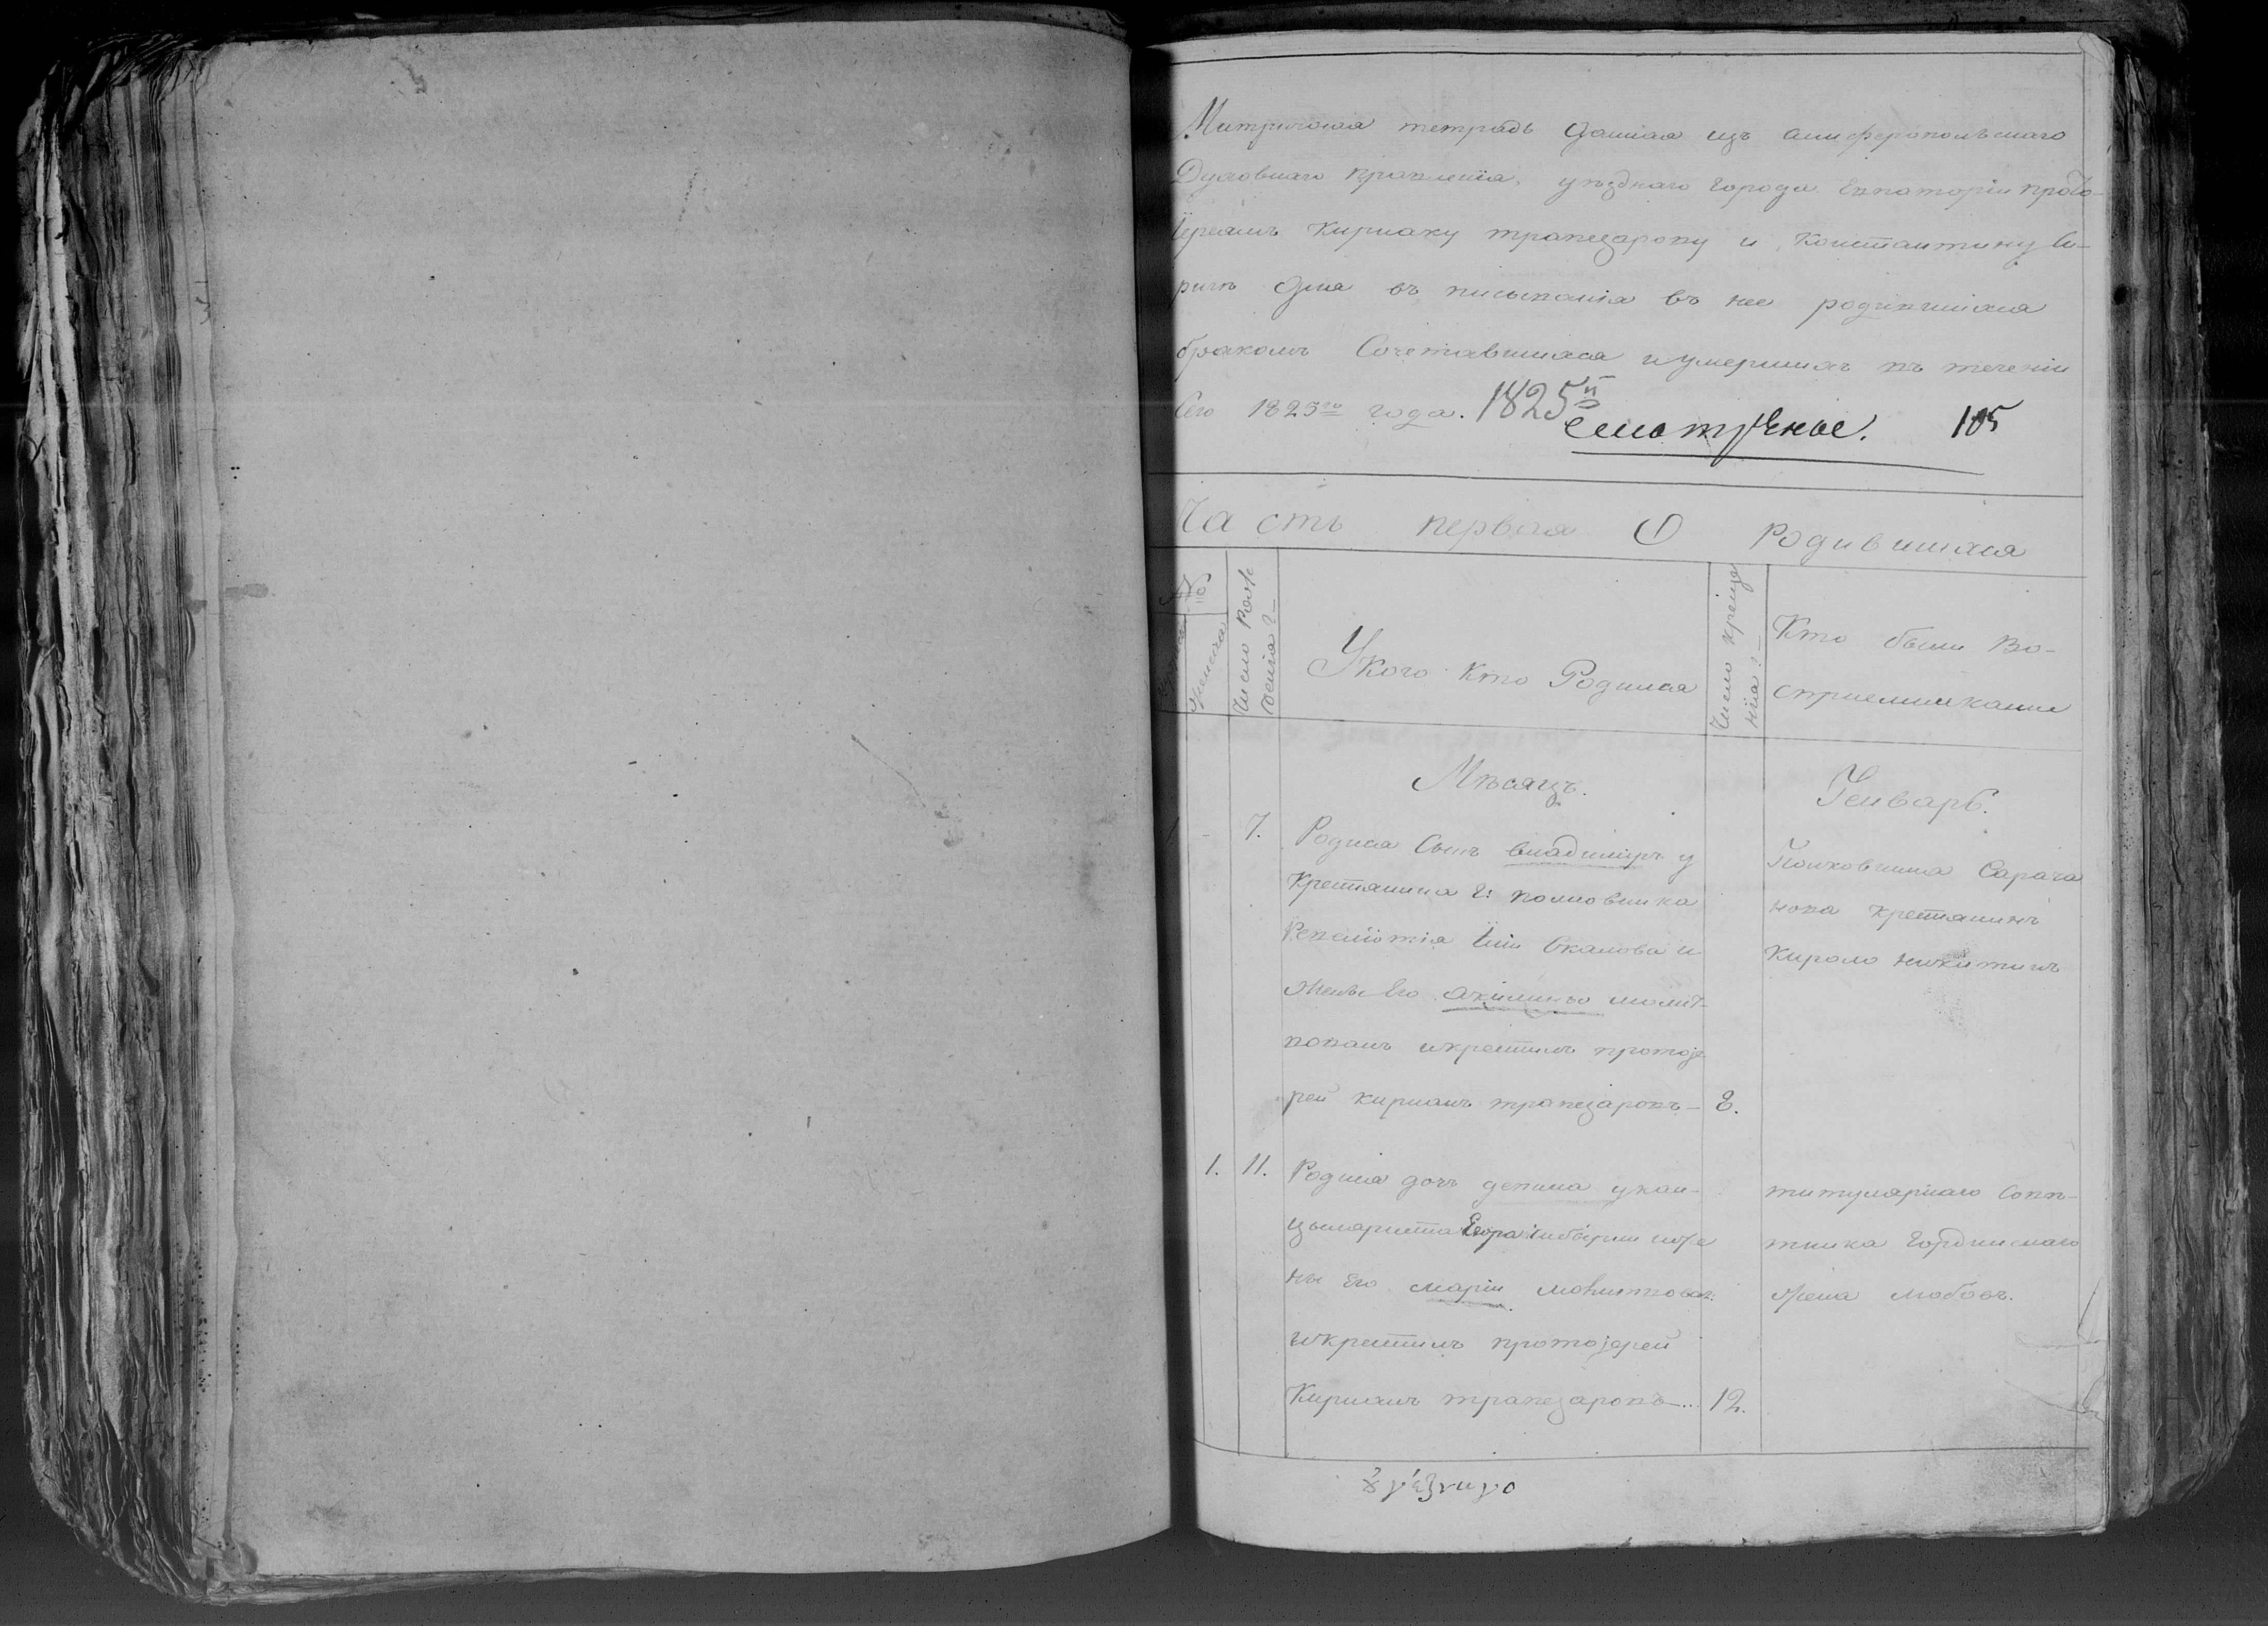 Митрическая тетрадь данная изъ симферопольскаго
Духовнаго правленія, уѣзднаго города Евпаторіи прото-
іереямъ Кириаку трапезарову и Константину
для въ писыванія въ нее родившихся
бракомъ Сочетавшихся и умершихъ въ теченіи
Сего 1825го года. 1825й
смотрѣное. 105
Часть первая О Родившихся
№
Число Рож
денія?
У кого кто Родился
Число креще
нія?
Кто были Во-
сприемниками
Мѣсяцъ.
Генварь.
1 - 7. Родися Сынъ владимиръ у
Крестянина г: полковника
Скалова и
Жены Его акилины молит-
вовалъ и крестилъ протоје
рей кириакъ трапезаровъ - 8.
Полковника Сарача
нова крестянинъ
Кирило никитинъ
1. 11. Родися дочъ у кан-
цыляриста Егора и же
ны Его маріи
и крестилъ протојерей
Кириакъ трапезаровъ... 12.
титулярнаго Совѣ-
тника
Жена любовъ.